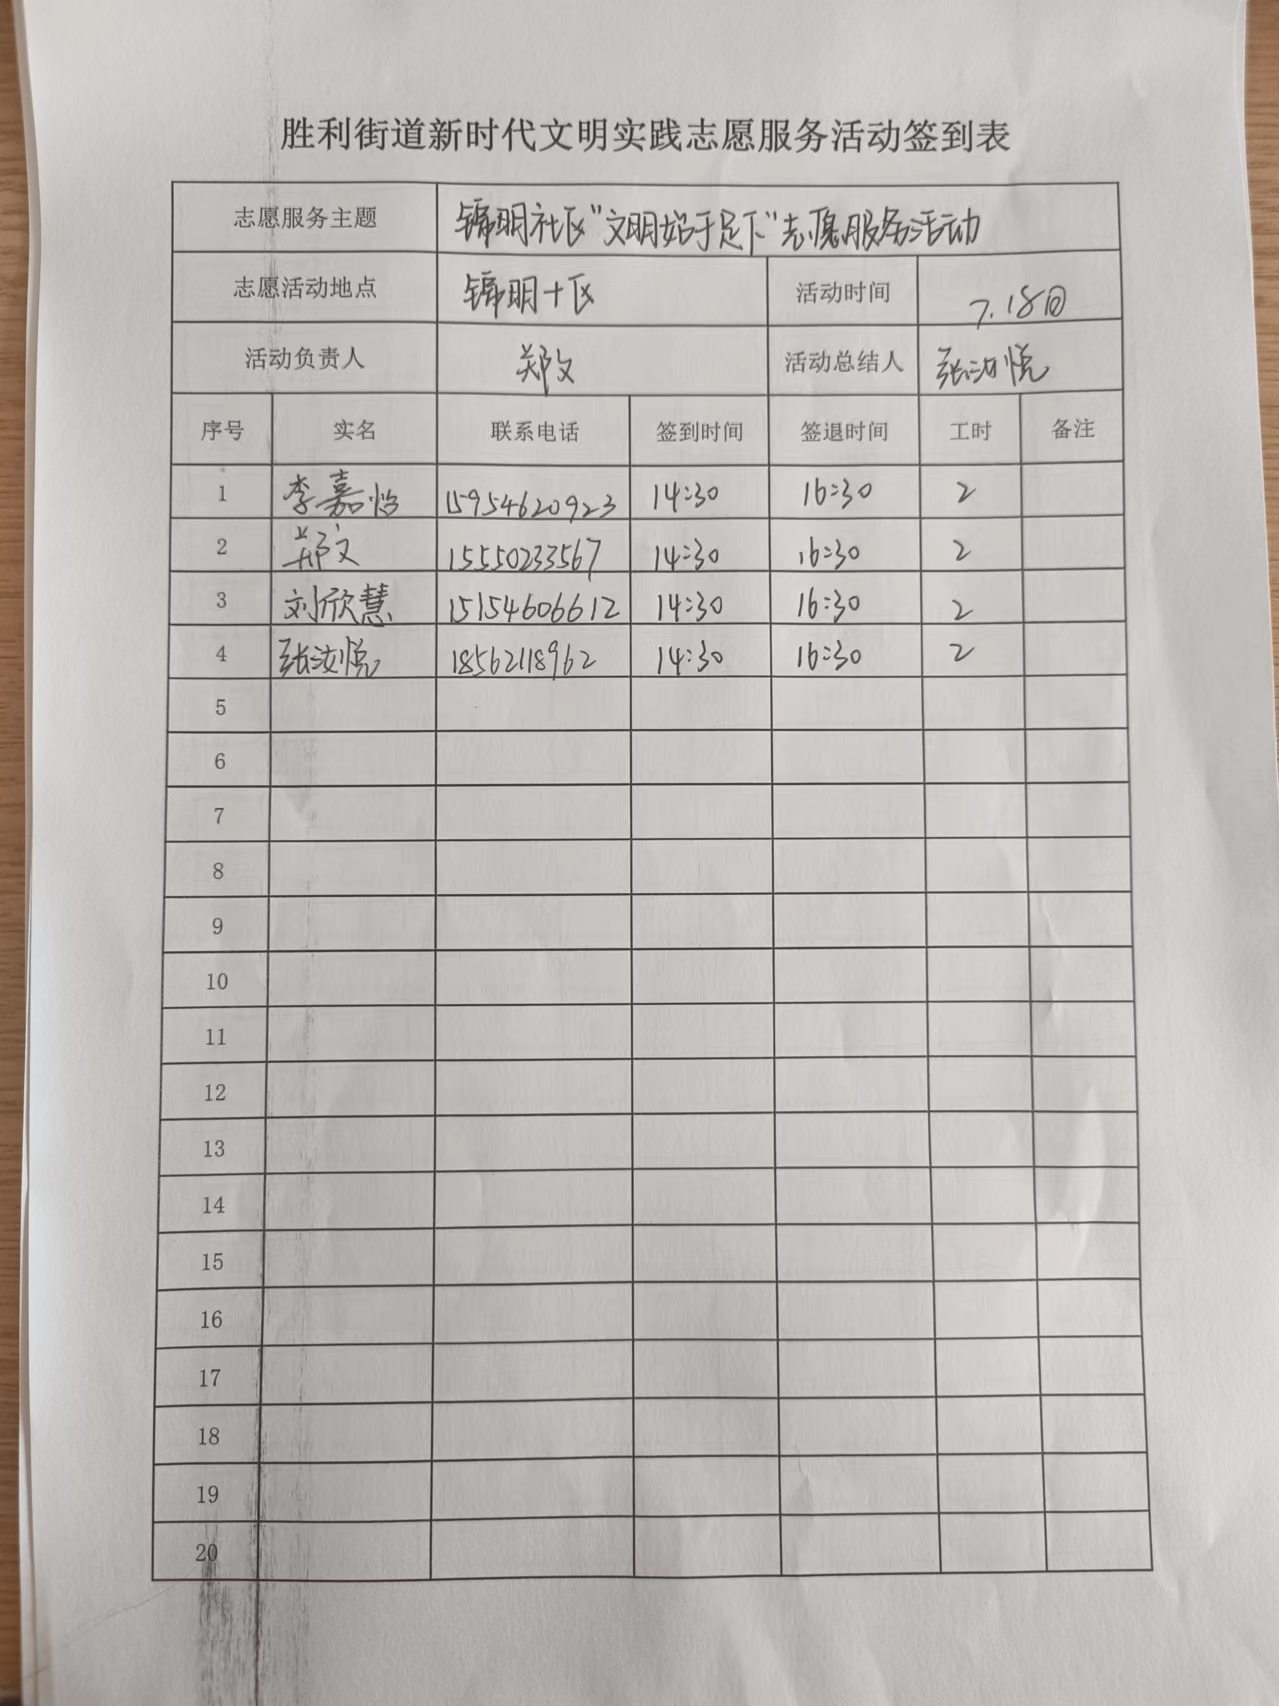 胜利街道新时代文明实践志愿服务活动签到表
志愿服务主题 锦明社区"文明始于足下"志愿服务活动
志愿活动地点 锦明十区 活动时间 7.18日
活动负责人 郑文 活动总结人 张汝悦
序号 实名 联系电话 签到时间 签退时间 工时 备注
1 李嘉怡 15954620923 14:30 16:30 2
2 郑文 15550233567 14:30 16:30 2
3 刘欣慧 15154606612 14:30 16:30 2
4 张汝悦 18562118962 14:30 16:30 2
5
6
7
8
9
10
11
12
13
14
15
16
17
18
19
20